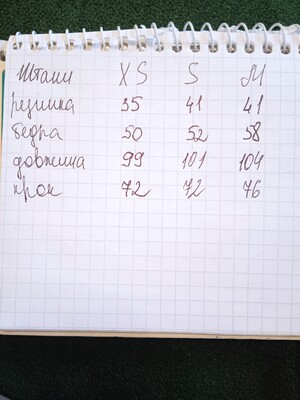 Штани XS S M
резинка 35 41 41
бедра 50 52 58
довжина 99 101 104
крок 72 72 76